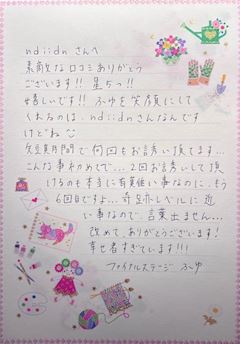 ndiidnさんへ
素敵な口コミありがとう
ございます!! 星5っ!!
嬉しいです!! ふゆを笑顔にして
くれるのは、ndiidnさんなんです
けどね
短期間で何回もお誘い頂てます...
こんな事初めてで...2回お誘いして頂
けるのも本当に有難い事なのに、もう
6回目ですよ...奇跡レベルに近
い事なので、言葉出ません...
改めて、ありがとうございます!
幸せ者すぎています!!!
ファイナルステージ ふゆ